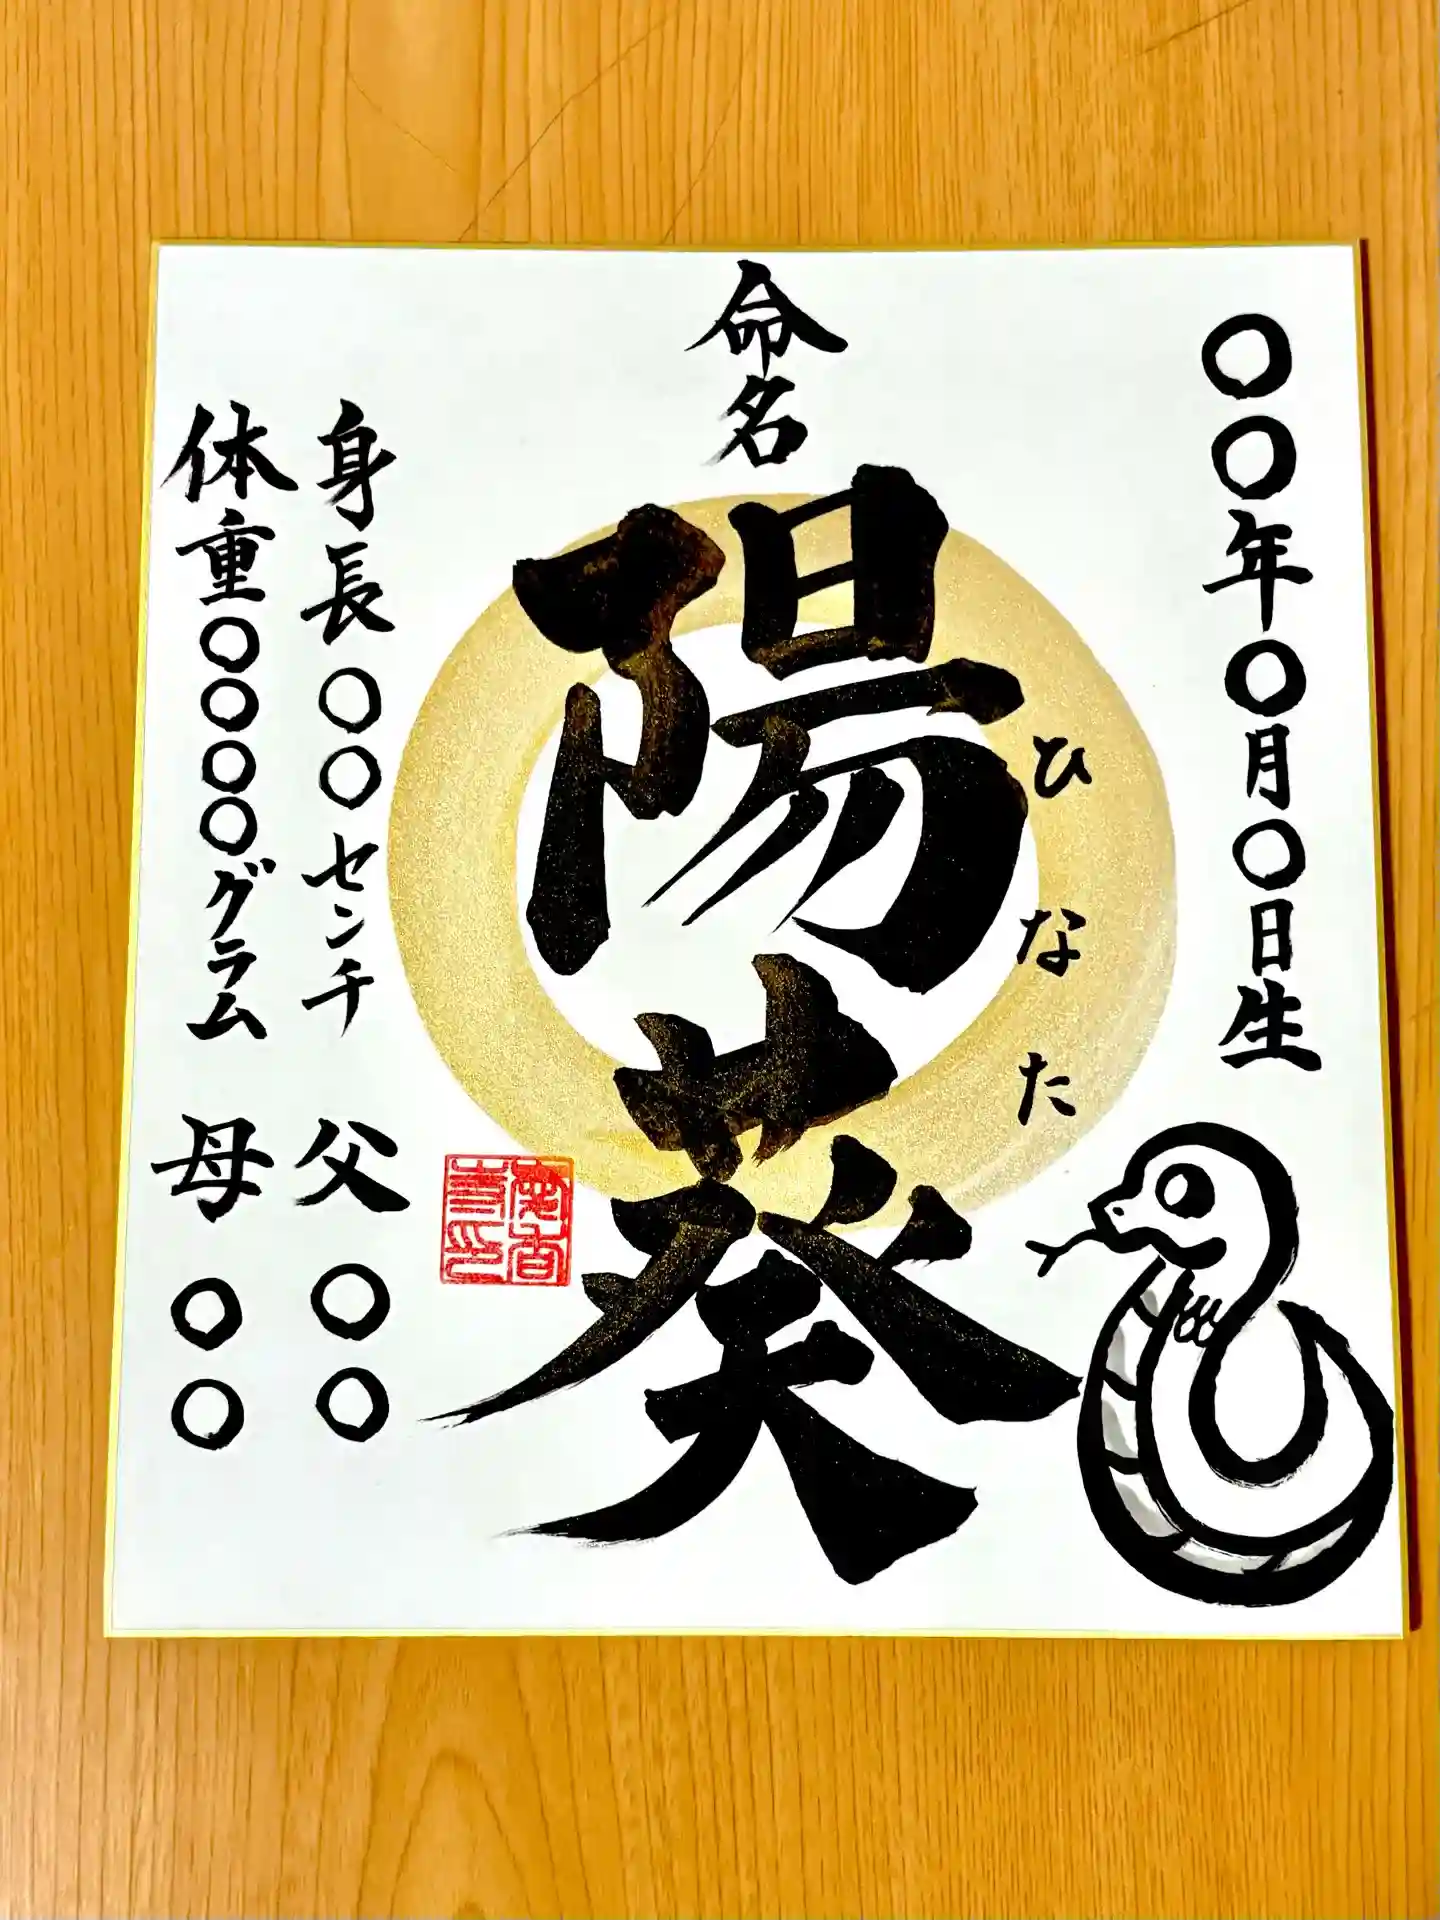 〇〇年〇月〇日生
命名
陽葵
ひなた
身長〇〇センチ
体重〇〇〇〇グラム
父 〇〇
母 〇〇